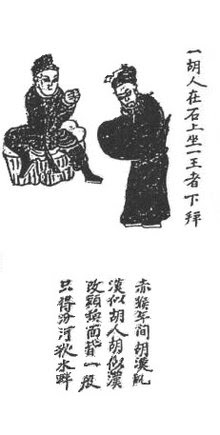 一胡人在石上坐一王者下拜
赤猴年間胡漢亂
漢似胡人胡似漢
改頭換面皆一般
只得汾河狄水畔